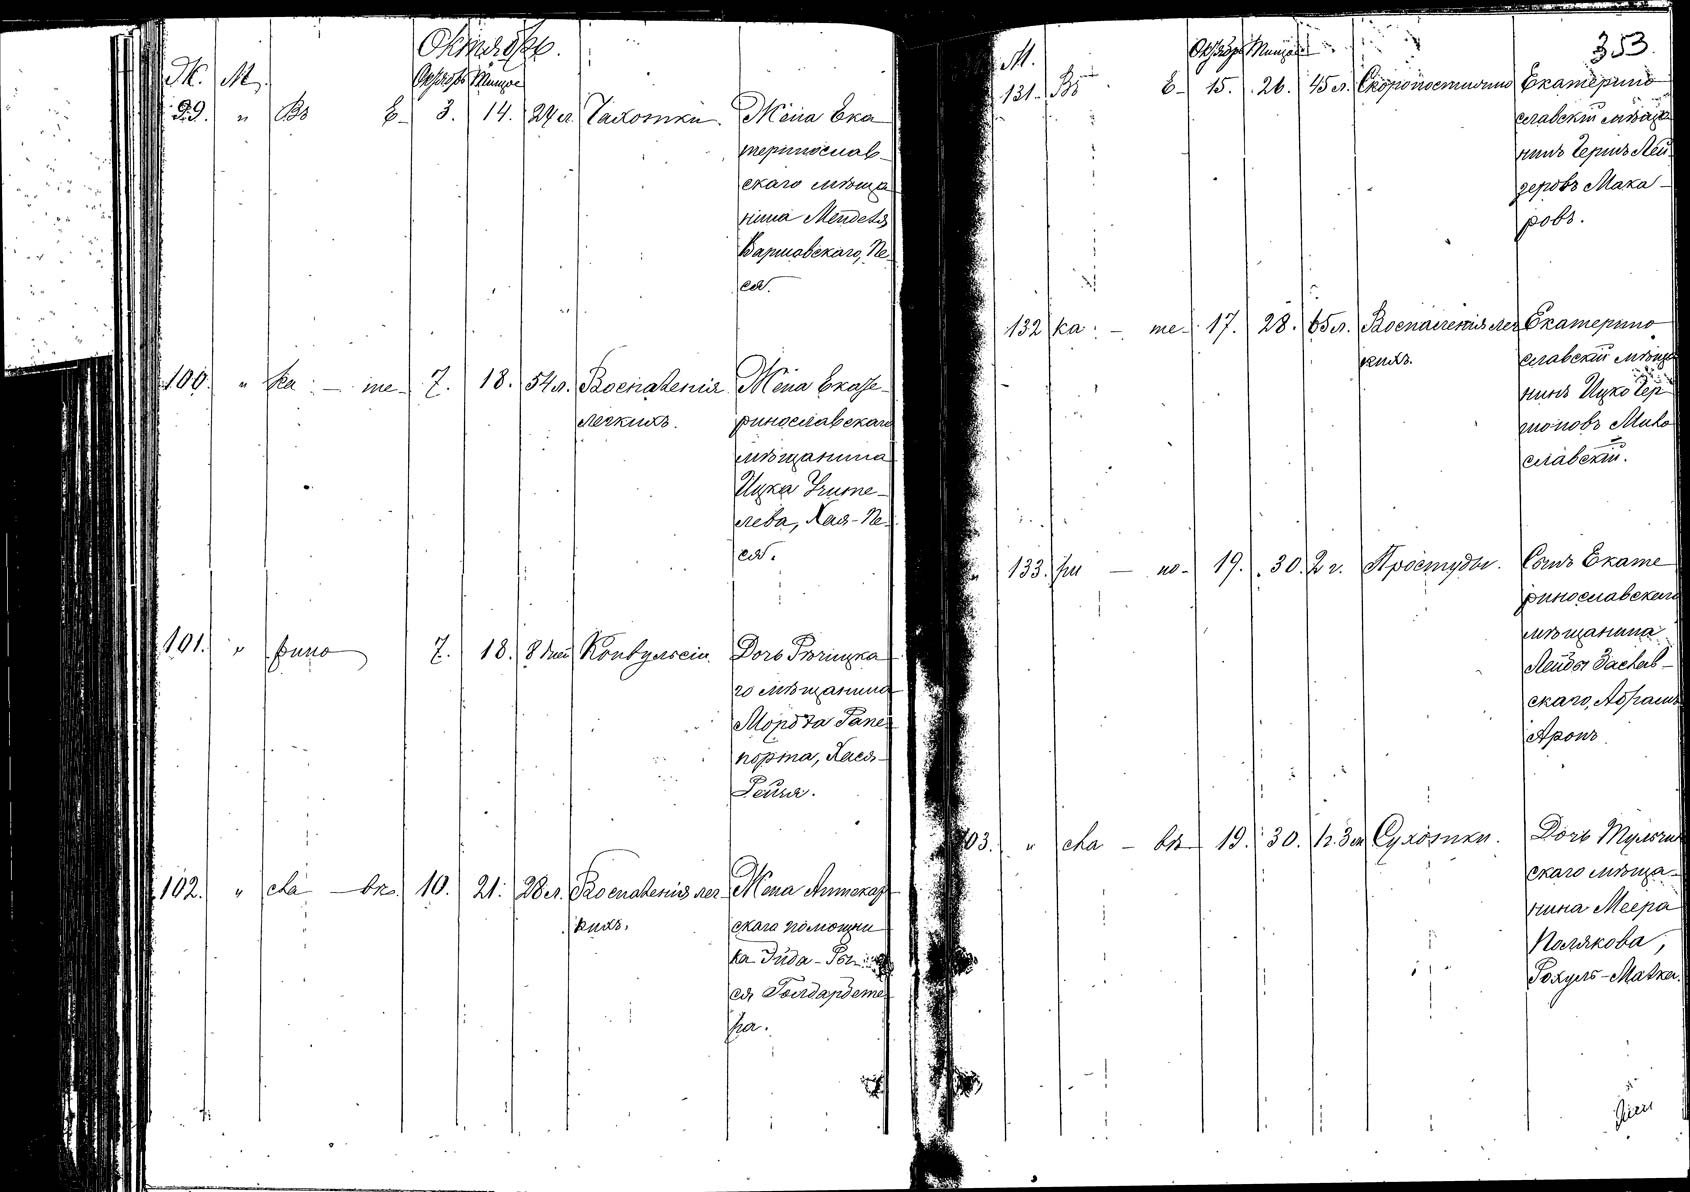 Октябрь.
Ж. М. Октябрь Тишрое
99. " Въ Е- 3. 14. 24 л. Чахотки. Жена Ека
теринослав-
скаго мѣща
нина Менделя
Варшавскаго, Пе-
ся.
100. " ка - те- 7. 18. 54 л. Воспаленія Жена Екате-
легкихъ. ринославскаго
мѣщанина
Ицка Учите-
лева, Хая-Пе-
ся.
101. " рино 7. 18. 8 дней Конвульсіи. Дочь Рѣчицка
го мѣщанина
Мордка Рапе-
порта, Хася-
Рейзя.
102. " сла - вѣ. 10. 21. 28 л. Воспаленія лег- Жена Аптекар
кихъ. скаго помощни
ка Эйда-Ры-
ся
ра.
353.
М. Октябрь Тишрое
131. Въ Е- 15. 26. 45 л. Скоропостижно Екатерино
славскій мѣща
нинъ Герцъ Лей
зеровъ Мака-
ровъ.
132 ка - те- 17. 28. 65 л. Воспаленія лег Екатерино
кихъ. славскій мѣща
нинъ Ицко Гер
шоновъ Мило
славскій.
" 133. ри - но- 19. 30. 2 г. Простуды. Сынъ Екате
ринославскаго
мѣщанина
Лейбы Заслав-
скаго, Абрамъ
Аронъ
103. " сла - вѣ- 19. 30. 1 г. 3 м Сухотки. Дочь Тульчин
скаго мѣща-
нина Меера
Полякова,
Рохуль-Малка.